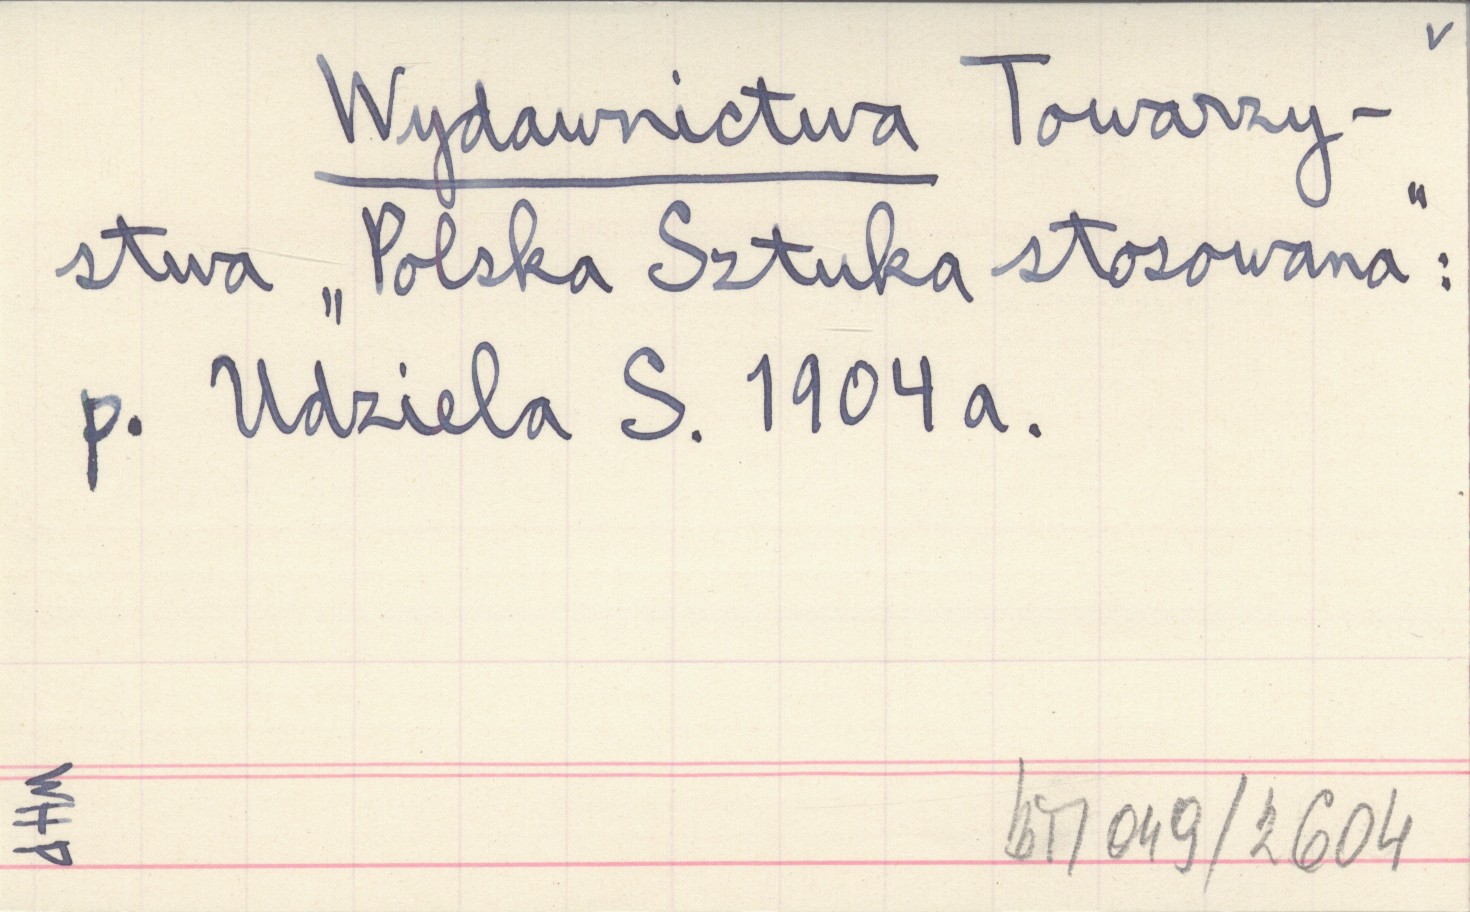 v
Wydawnictwa Towarzy-
stwa „Polska Sztuka stosowana":
p. Udziela S. 1904 a.
WHP
049/2604